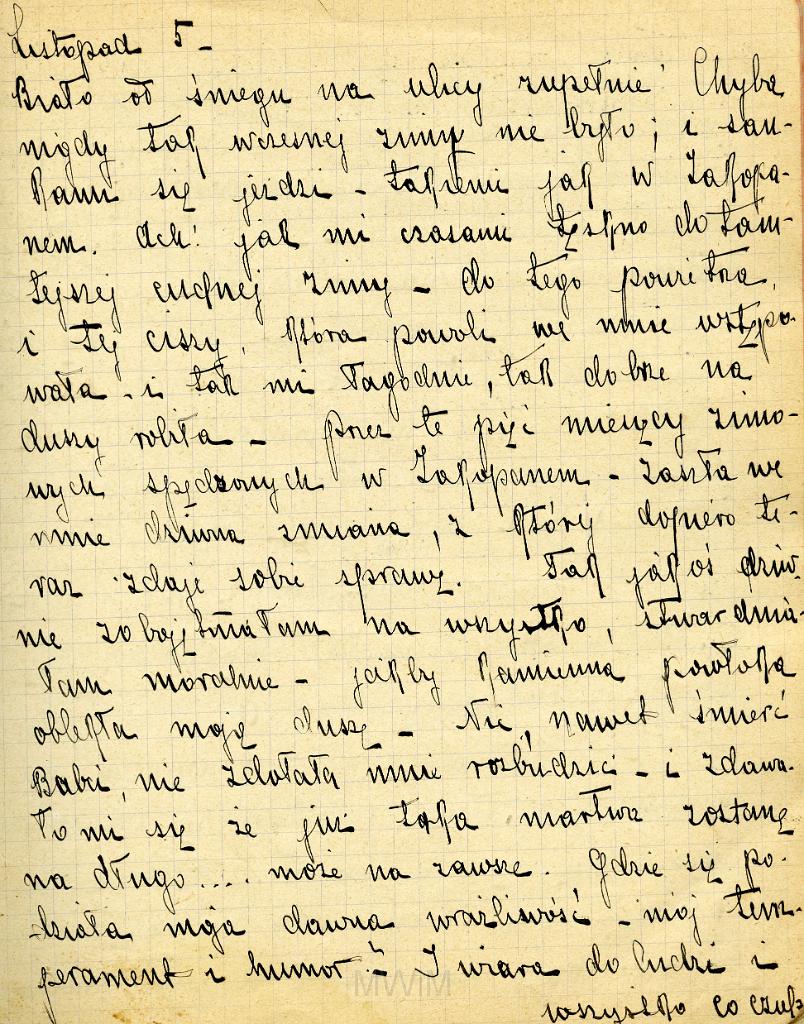 Listopad 5 –
Biało od śniegu na ulicy zupełnie! Chyba
nigdy tak wczesnej zimy nie było; i san-
kami się jeździ – takiemi jak w Zakopa-
nem. Ach! jak mi czasami tęskno do tam-
tejszej cudnej zimy – do tego powietrza,
i tej ciszy, która powoli we mnie wstępo-
wała – i tak mi łagodnie, tak dobrze na
duszy robiła – przez te pięć miesięcy zimo-
wych spędzonych w Zakopanem – zaszła we
mnie dziwna zmiana, z której dopiero te-
raz zdaję sobie sprawę. Tak jakoś dziw-
nie zobojętniałam na wszystko, stwardnia-
łam moralnie – jakby kamienna powłoka
oblekła moją duszę – Nic, nawet śmierć
Babci, nie zdołała mnie rozbudzić – i zdawa-
ło mi się że już taka martwa zostanę
na długo .... może na zawsze. Gdzie się po-
działa moja dawna wrażliwość – mój tem-
perament i humor? – I wiara do ludzi i
wszystko co czuł-
MWM